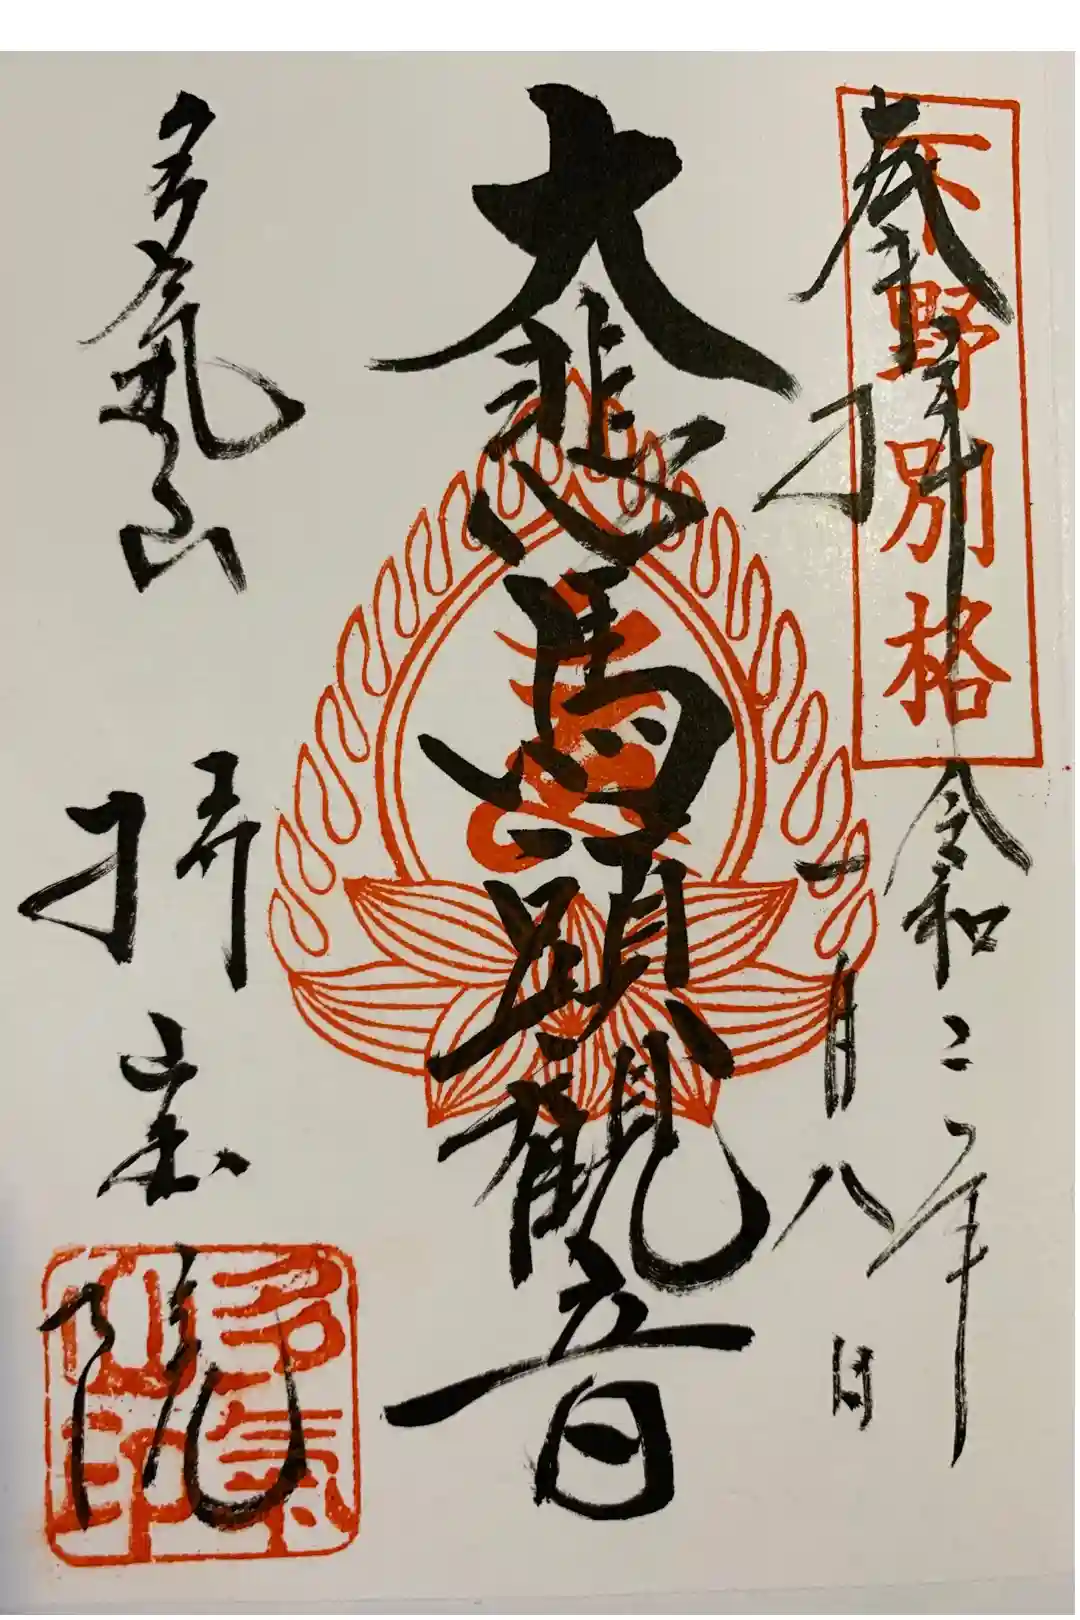 奉拝
下野別格
令和二年
一月八日
大悲馬頭観音
多氣山
持宝院
多氣山印